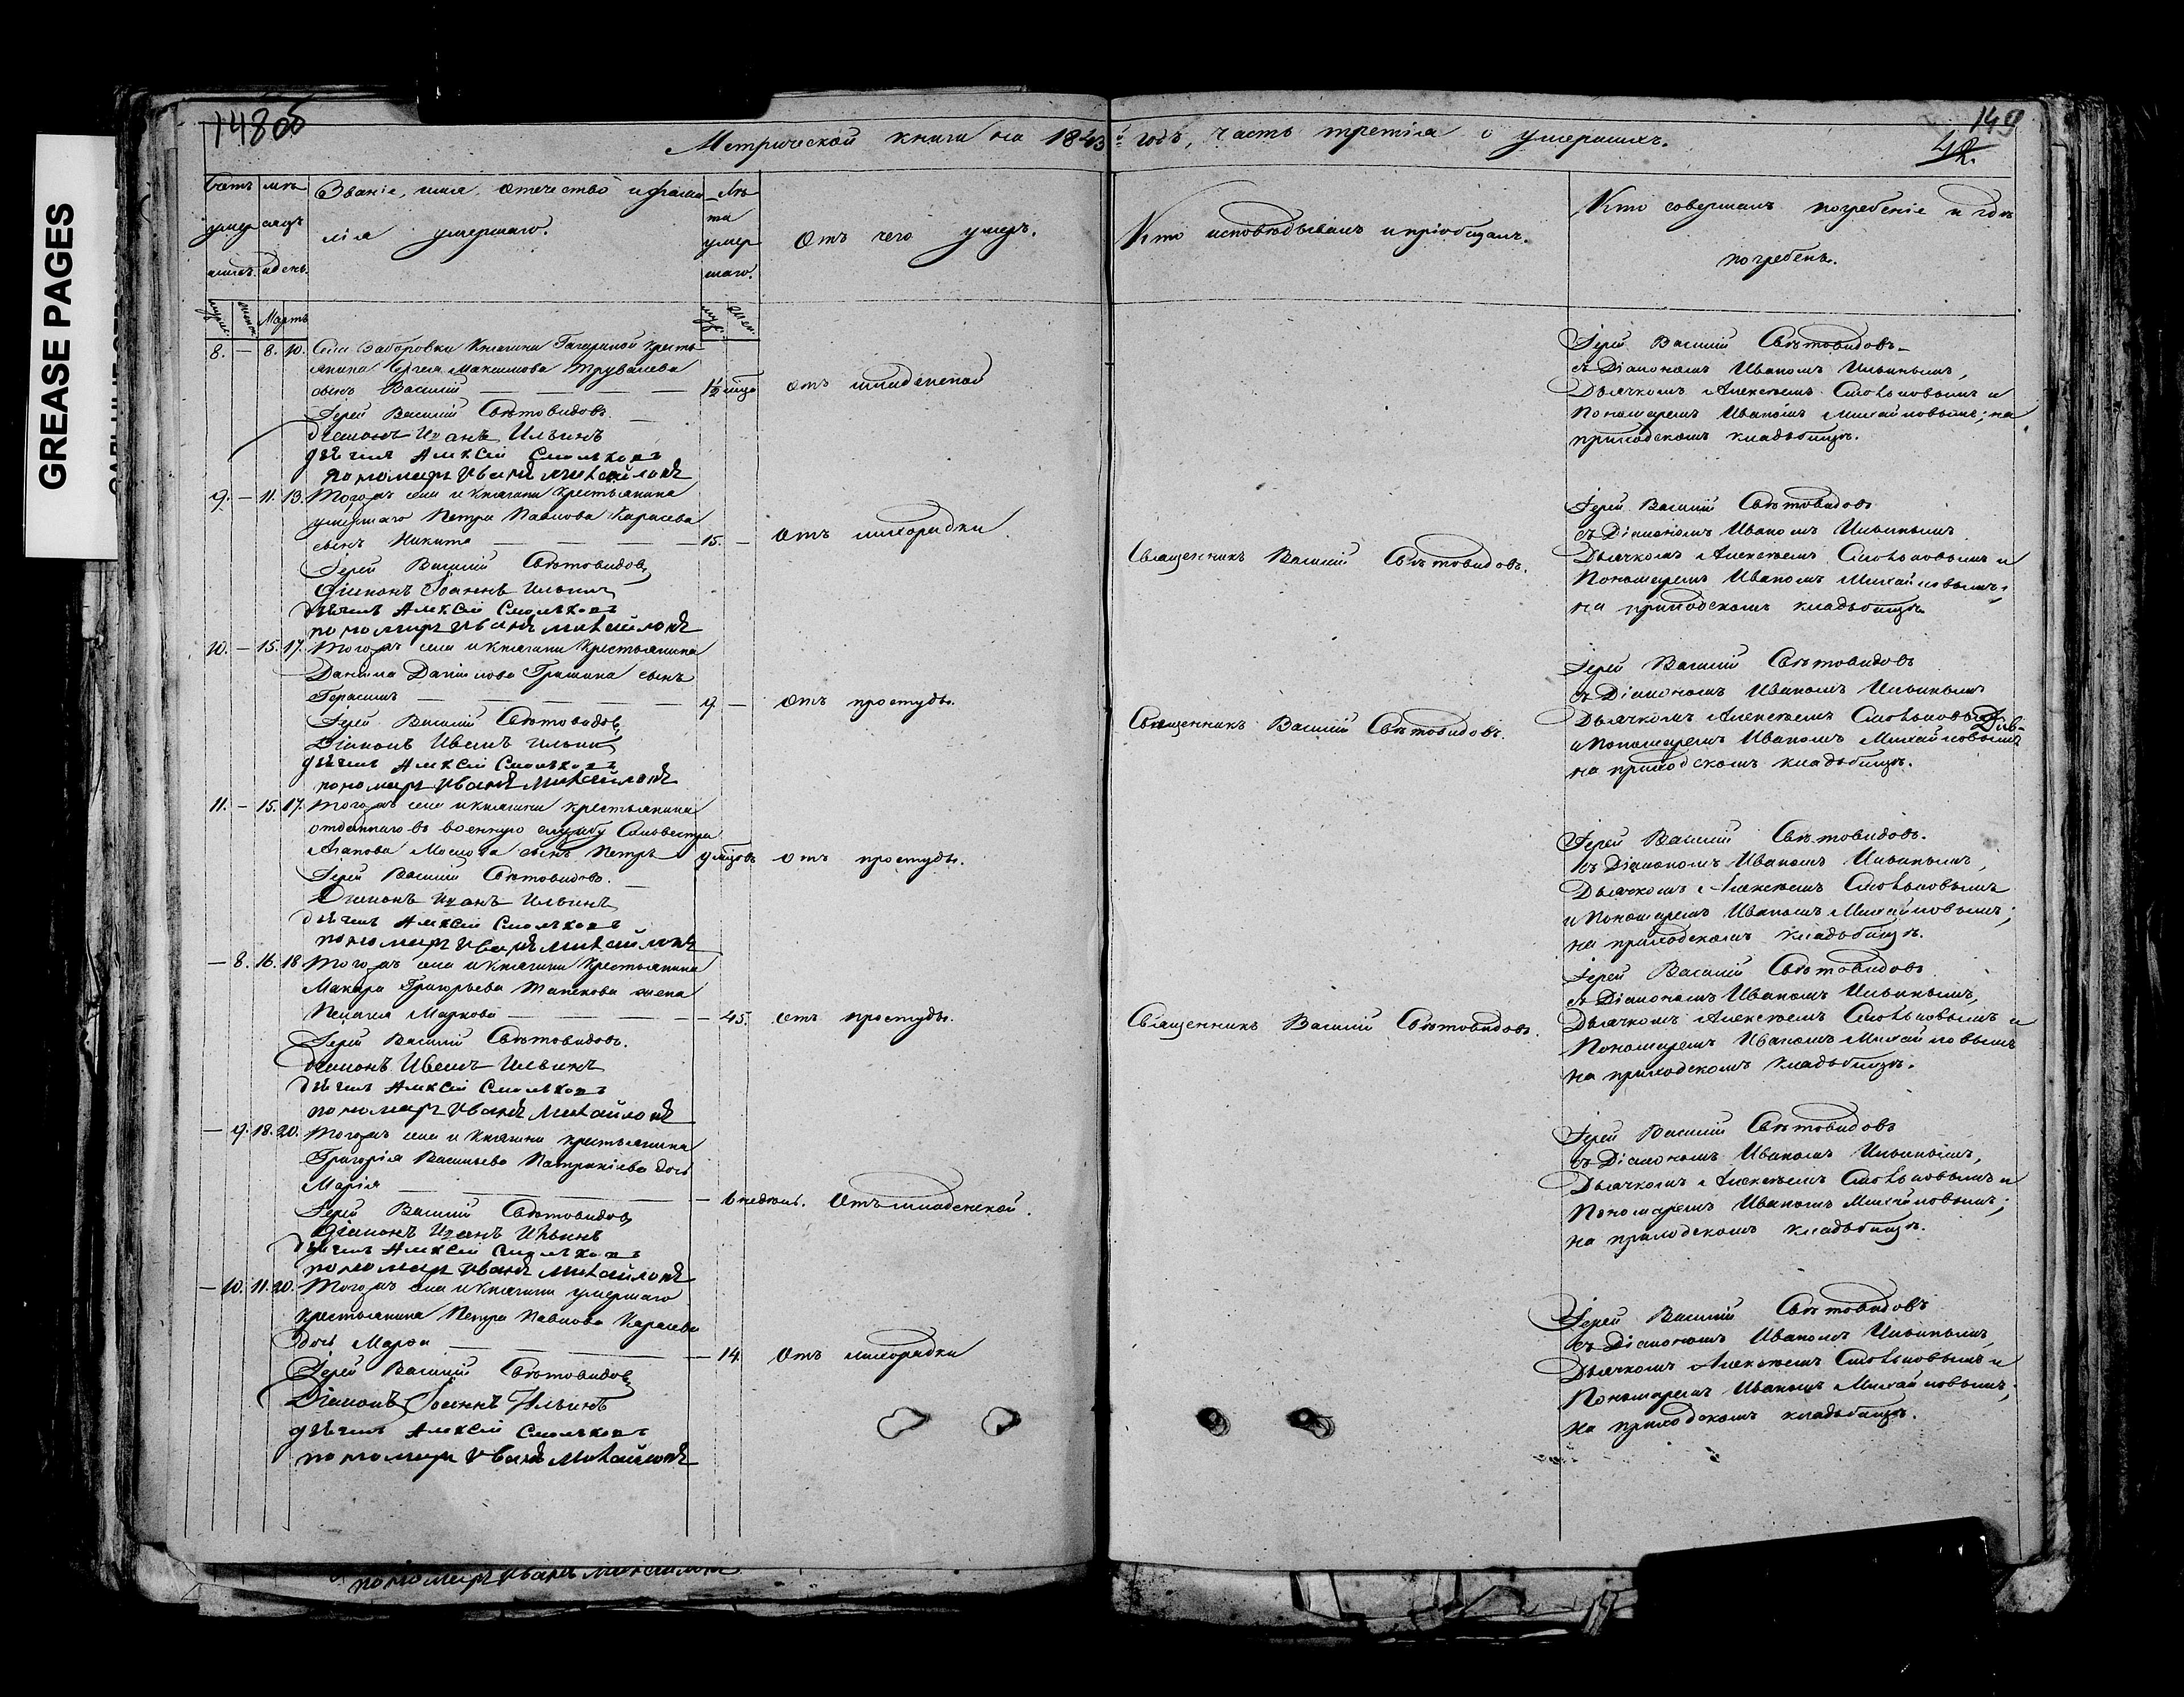 GREASE PAGES
148 об
149
42.
Метрической книги на 1843й годъ, часть третія о умершихъ.
Счетъ умершихъ.
Мѣсяцъ и день.
Званіе, имя, отечество и фамилія умершаго.
Лѣта умершаго.
Отъ чего умеръ.
Кто исповѣдывалъ и пріобщалъ.
Кто совершалъ погребеніе и гдѣ погребенъ.
муж. женск. Мартъ муж. жен.
8. — 8. 10. Села Заборовки Княгини Гагариной кресть-
янина Сергея Максимова Трувалева
сынъ Василій — — — 1½ мѣца отъ младенской
Іерей Василій Свѣтовидовъ
Діаконъ Иоанъ Ильинъ
дьячекъ Алексій Смольковъ
пономарь Иванъ Михайловъ
Іерей Василій Свѣтовидовъ
съ Діакономъ Иваномъ Ильинымъ,
Дьячкомъ Алексѣемъ Смольковымъ и
Пономаремъ Иваномъ Михайловымъ; на
приходскомъ кладбищѣ.
9. — 11. 13. Тогожъ села и Княгини крестьянина
умершаго Петра Павлова Карасева
сынъ Никита — — — 15. — Отъ лихорадки.
Іерей Василій Свѣтовидовъ
Діаконъ Іоаннъ Ильинъ
дьячекъ Алексій Смольковъ
пономарь Иванъ Михайловъ
Священникъ Василій Свѣтовидовъ.
Іерей Василій Свѣтовидовъ
съ Діакономъ Иваномъ Ильинымъ
Дьячкомъ Алексѣемъ Смольковымъ и
Пономаремъ Иваномъ Михайловымъ,
на приходскомъ кладбищѣ.
10. — 15. 17. Тогожъ села и Княгини Крестьянина
Данила Данилова Гришина сынъ
Герасимъ — — — 9 — Отъ простуды.
Іерей Василій Свѣтовидовъ
Діаконъ Иванъ Ильинъ
дьячекъ Алексій Смольковъ
пономарь Иванъ Михайловъ
Священникъ Василій Свѣтовидовъ.
Іерей Василій Свѣтовидовъ
съ Діакономъ Иваномъ Ильинымъ
Дьячкомъ Алексѣемъ Смольковымъ
и Пономаремъ Иваномъ Михайловымъ
на приходскомъ кладбищѣ.
11. — 15. 17. Тогожъ села и Княгини крестьянина
отданнаго въ военную службу Сильвестра
Агапова сынъ Петръ 9 мѣцовъ отъ простуды.
Іерей Василій Свѣтовидовъ.
Діаконъ Иоанъ Ильинъ
дьячекъ Алексій Смольковъ
пономарь Иванъ Михайловъ
Іерей Василій Свѣтовидовъ.
съ Діакономъ Иваномъ Ильинымъ,
Дьячкомъ Алексѣемъ Смольковымъ
и Пономаремъ Иваномъ Михайловымъ;
на приходскомъ кладбищѣ.
— 8. 16. 18 Тогожъ села и Княгини Крестьянина
Макара Григорьева жена
Пелагея Маркова — — — 45. отъ простуды.
Іерей Василій Свѣтовидовъ.
Діаконъ Иванъ Ильинъ
дьячекъ Алексій Смольковъ
пономарь Иванъ Михайловъ
Священникъ Василій Свѣтовидовъ.
Іерей Василій Свѣтовидовъ
съ Діакономъ Иваномъ Ильинымъ,
Дьячкомъ Алексѣемъ Смольковымъ и
Пономаремъ Иваномъ Михайловымъ
на приходскомъ кладбищѣ.
— 9. 18. 20. Тогожъ села и Княгини крестьянина
Григорія Васильева Патрикіева дочь
Марія — — — 6 недѣль. Отъ младенской.
Іерей Василій Свѣтовидовъ
Діаконъ Иоанъ Ильинъ
дьячекъ Алексій Смольковъ
пономарь Иванъ Михайловъ
Іерей Василій Свѣтовидовъ
съ Діакономъ Иваномъ Ильинымъ,
Дьячкомъ Алексѣемъ Смольковымъ и
Пономаремъ Иваномъ Михайловымъ;
на приходскомъ кладбищѣ.
— 10. 11. 20. Тогожъ села и Княгини умершаго
крестьянина Петра Павлова Карасева
дочь Марѳа — — — 14. Отъ лихорадки
Іерей Василій Свѣтовидовъ
Діаконъ Іоаннъ Ильинъ
дьячекъ Алексій Смольковъ
пономарь Иванъ Михайловъ
Іерей Василій Свѣтовидовъ
съ Діакономъ Иваномъ Ильинымъ,
Дьячкомъ Алексѣемъ Смольковымъ и
Пономаремъ Иваномъ Михайловымъ;
на приходскомъ кладбищѣ.
пономарь Иванъ Михайловъ